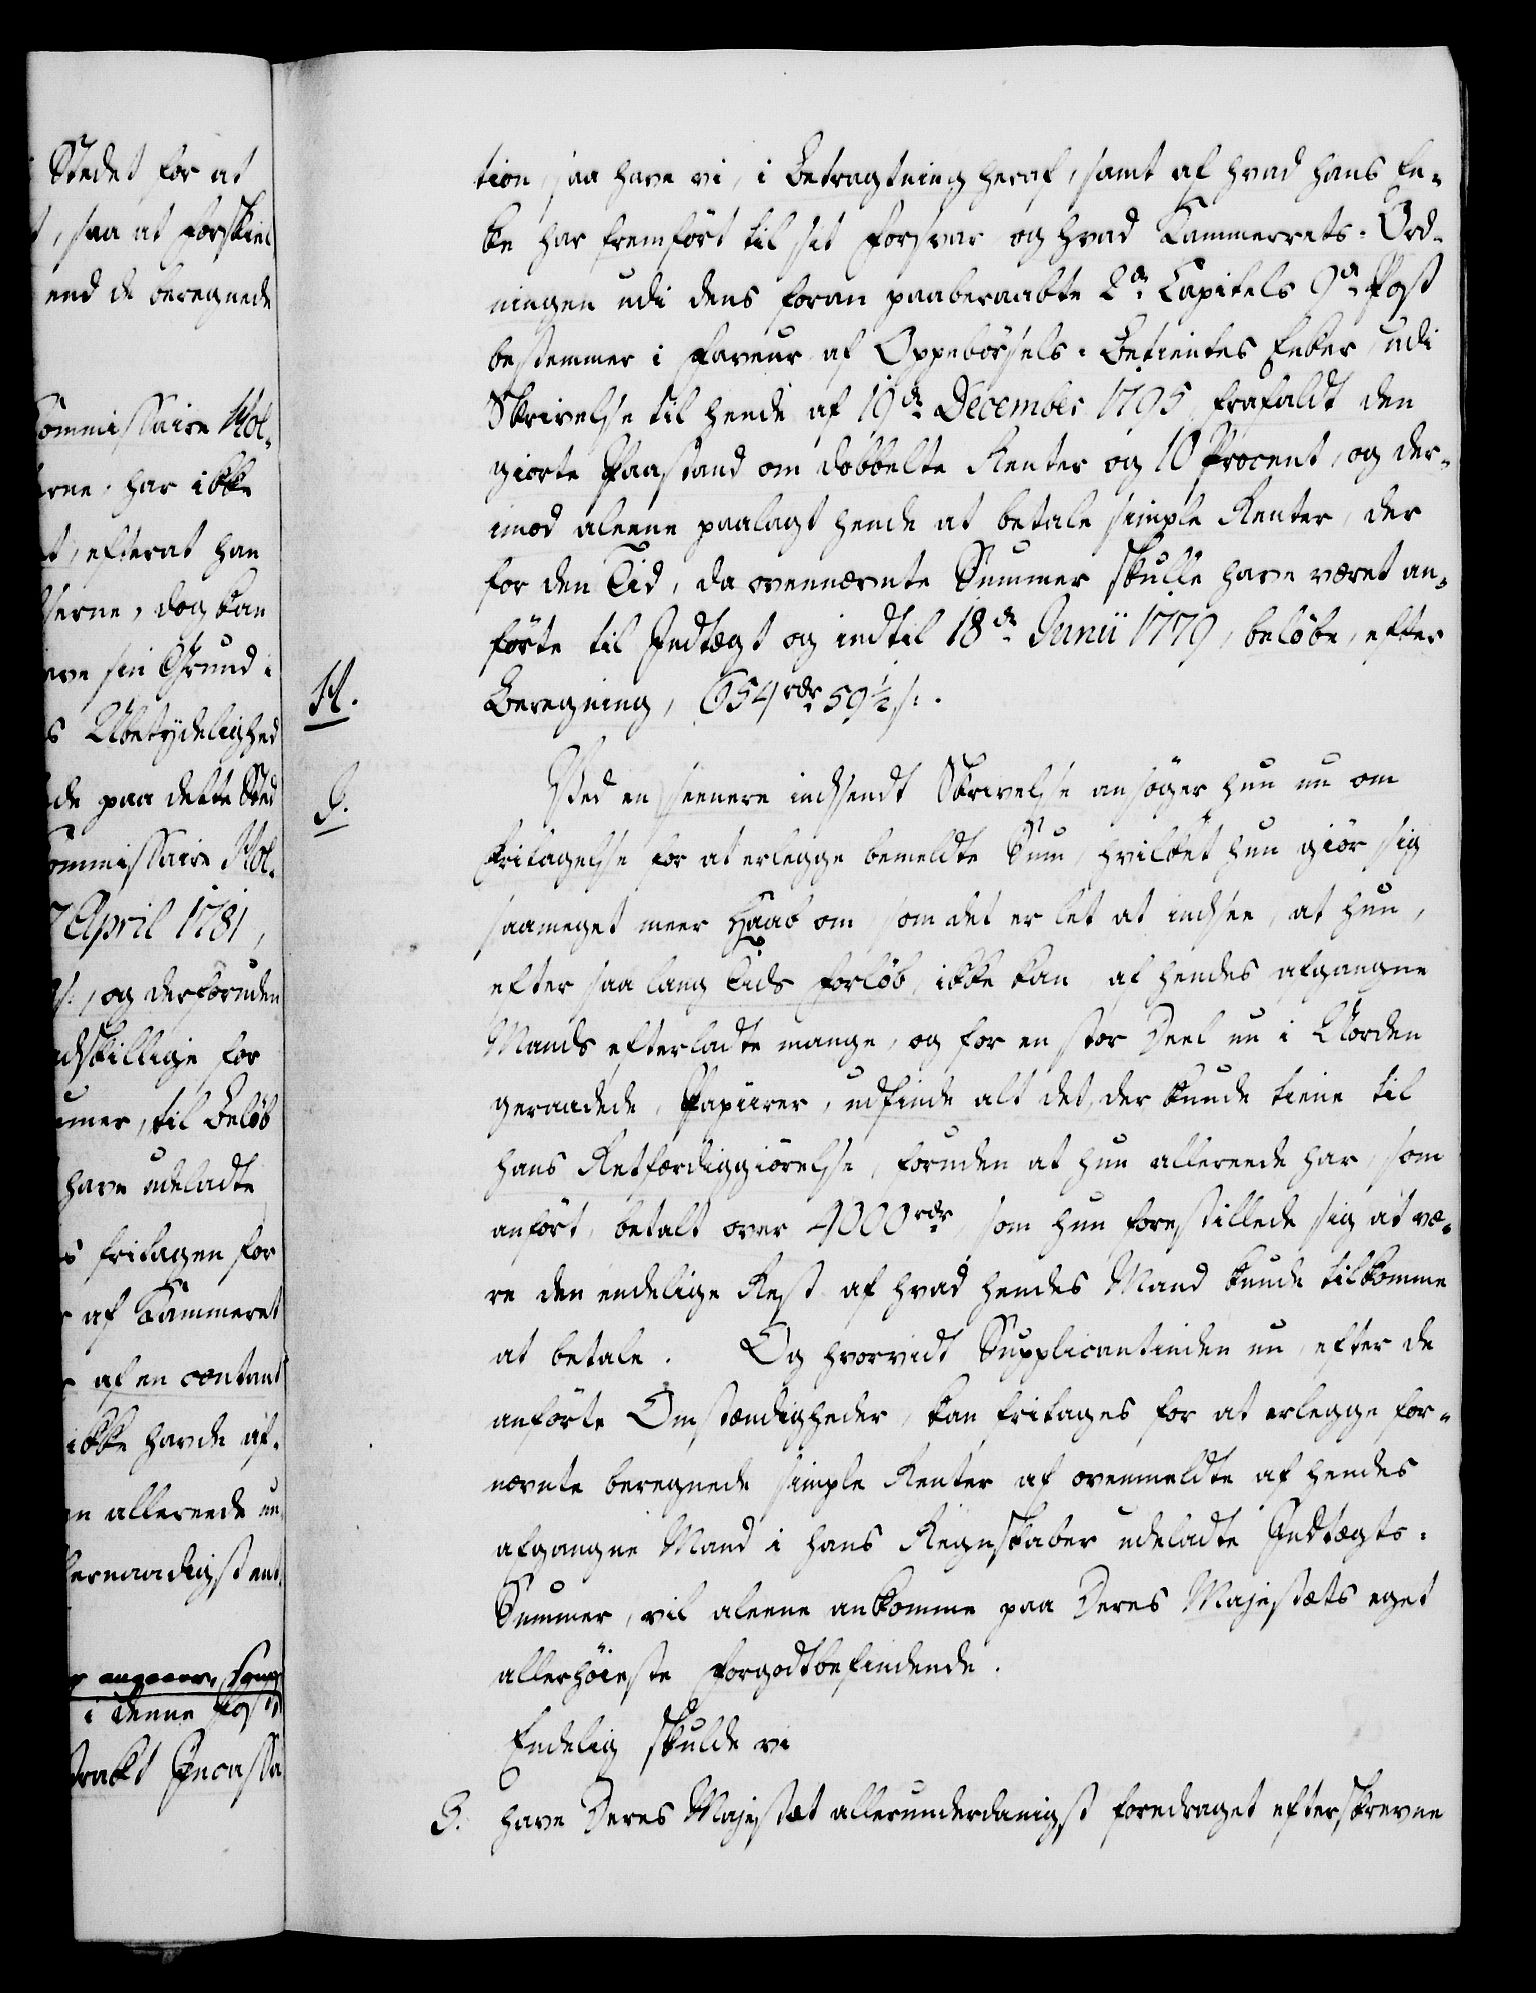 Stedet for at
, saa at forskiel
end de beregnede
Commissaire Hol-
erne, har ikke
t, efterat han
erne, dog kan
ave sin Grund i
s Ubetydelighed
de paa dette Sted
ommissaire Hol-
7 April 1781,
s:, og desforuden
adskillige for
umer, til Beløb
have udeladte
s fritagen for
af Kammeret
af en contant
ikke havde af-
n allereede un-
lernaadigst ant
i denne Post
trakt Incassa
tion, saa have vi, i Betragtning heraf, samt af hvad hans En-
ke har fremført til sit Forsvar og hvad Kammerrets-Ord-
ningen udi dens foran paaberaabte 2de Capitels 9de Post
bestemmer i Faveur af Oppebørsels-Betientes Enker, udi
Skrivelse til hende af 19de December 1795, frafaldt den
giorte Paastand om dobbelte Renter og 10 Procent, og der-
imod aleene paalagt hende at betale simple Renter, der
for den Tid, da ovennævnte Summer skulle have været an-
førte til Indtægt og indtil 18de Junii 1779, beløbe, efter
H. Beregning, 654 rdr 59½ s:.
I. Ved en seenere indsendt Skrivelse ansøger hun nu om
Fritagelse for at erlegge bemeldte Sum, hvilket hun giør sig
saameget meer Haab om, som det er let at indsee, at hun,
efter saa lang Tids Forløb, ikke kan af hendes afgangne
Mands efterladte mange, og for en stor Deel nu i Uorden
geraadede, Papiirer, udfinde alt det, der kunde tiene til
hans Retfærdiggiørelse, foruden at hun allereede har, som
anført, betalt over 4000 rdr, som hun forestillede sig at væ-
re den endelige Rest af hvad hendes Mand kunde tilkomme
at betale. Og hvorvidt Supplicantinden nu, efter de
anførte Omstændigheder, kan fritages for at erlegge for-
nævnte beregnede simple Renter af ovenmeldte af hendes
afgangne Mand i hans Regnskaber udeladte Indtægts-
Summer, vil aleene ankomme paa Deres Majestæts eget
allerhøieste Forgodtbefindende.
Endelig skulde vi
3. have Deres Majestæt allerunderdanigst foredraget efterskrevne